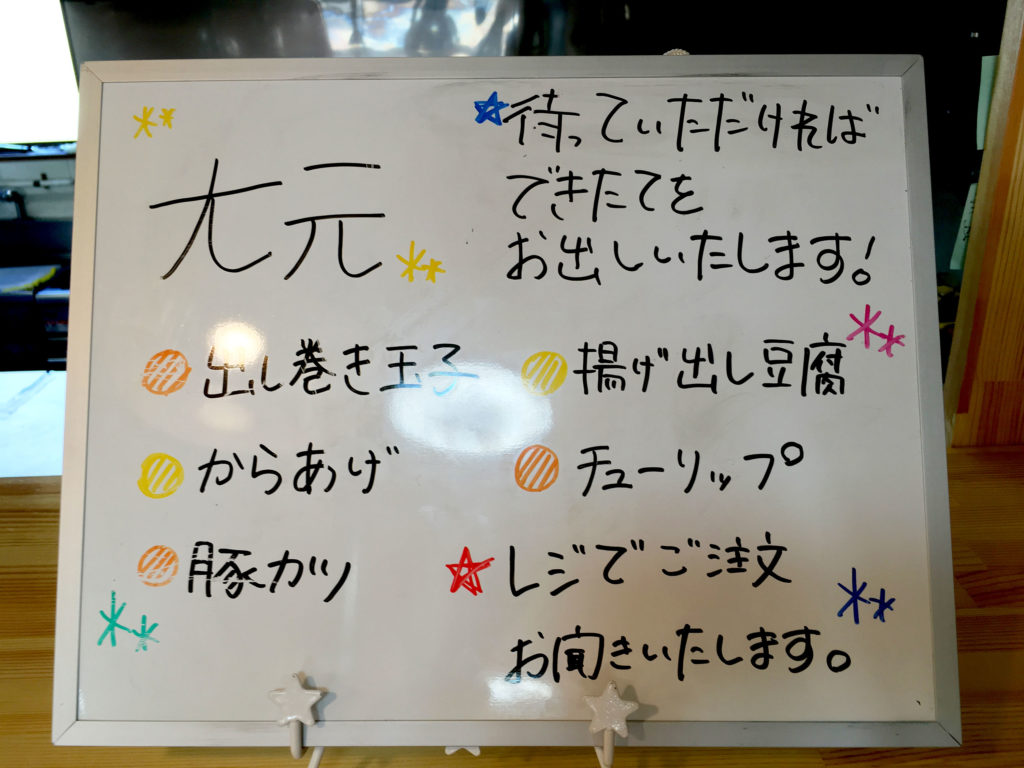 大元
待っていただければ
できたてを
お出しいたします!
出し巻き玉子
揚げ出し豆腐
からあげ
チューリップ
豚カツ
レジでご注文
お聞きいたします。